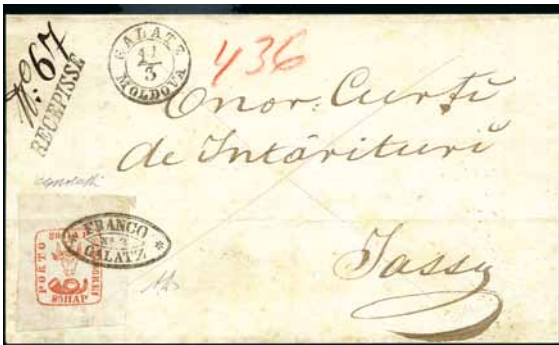 No: 67
RECEPISSE
GALATZ
11/3
MOLDOVA
436
Onor: Curti
de Intârituri
Jassy
FRANCO
No 2
GALATZ
PORTO